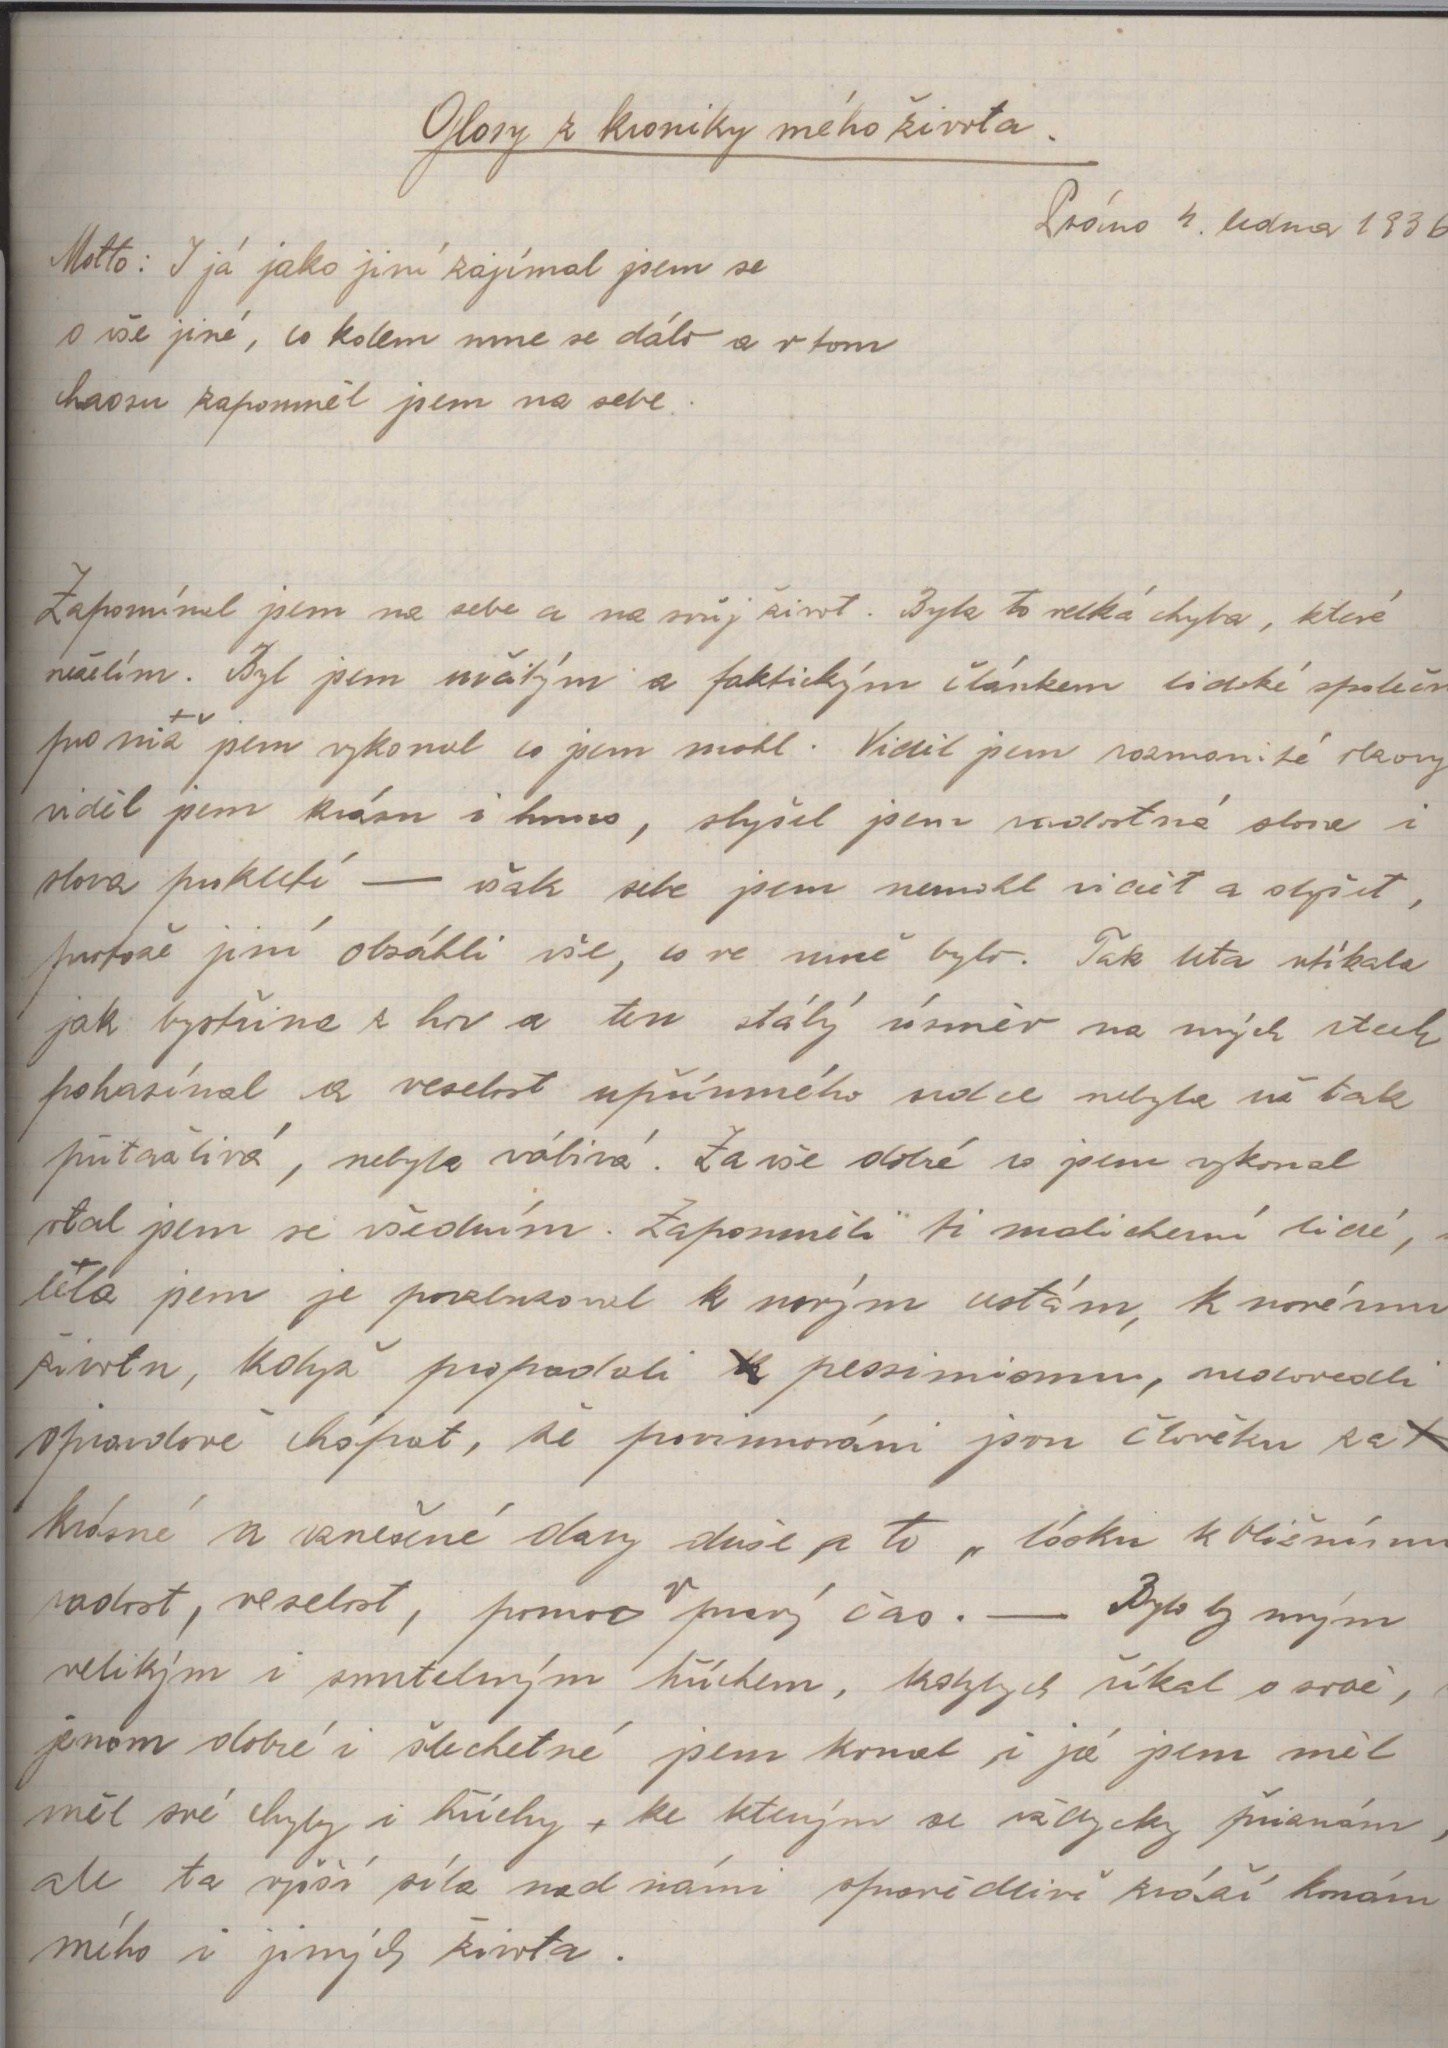 Glosy z kroniky mého života.
4. ledna 1936
Motto: I já jako jiní zajímal jsem se
o vše jiné, co kolem mne se dálo a v tom
chaosu zapomněl jsem na sebe.
Zapomínal jsem na sebe a na svůj život. Byla to velká chyba, které
neželím. Byl jsem určitým a faktickým článkem lidské společn
pro niž jsem vykonal co jsem mohl. Viděl jsem rozmanité
viděl jsem krásu i hnus, slyšel jsem radostná slova i
slova prokletí — však sebe jsem nemohl vidět a slyšet,
protože jiní obsáhli vše, co ve mně bylo. Tak léta utíkala
jak bystřina z hor a ten stálý úsměv na mých rtech
pohasínal a veselost upřímného srdce nebyla už tak
přitažlivá, nebyla vábivá. Za vše dobré co jsem vykonal
stal jsem se všedním. Zapomněli ti malicherní lidé,
léta jsem je povzbuzoval k novým cestám, k novému
životu, když propadali pessimismu, nedovedli
opravdově chápat, že povinnováni jsou člověku za
krásné a vznešené dary duše a to „ lásku k bližnímu
radost, veselost, pomoc v pravý čas. — Bylo by mým
velikým i smrtelným hříchem, kdybych říkal o sobě,
jenom dobré i šlechetné jsem konal, i já jsem měl
měl své chyby i hříchy, ke kterým se vždycky přiznám,
ale ta vyšší síla nad námi spravedlivě zváží konám
mého i jiných života.